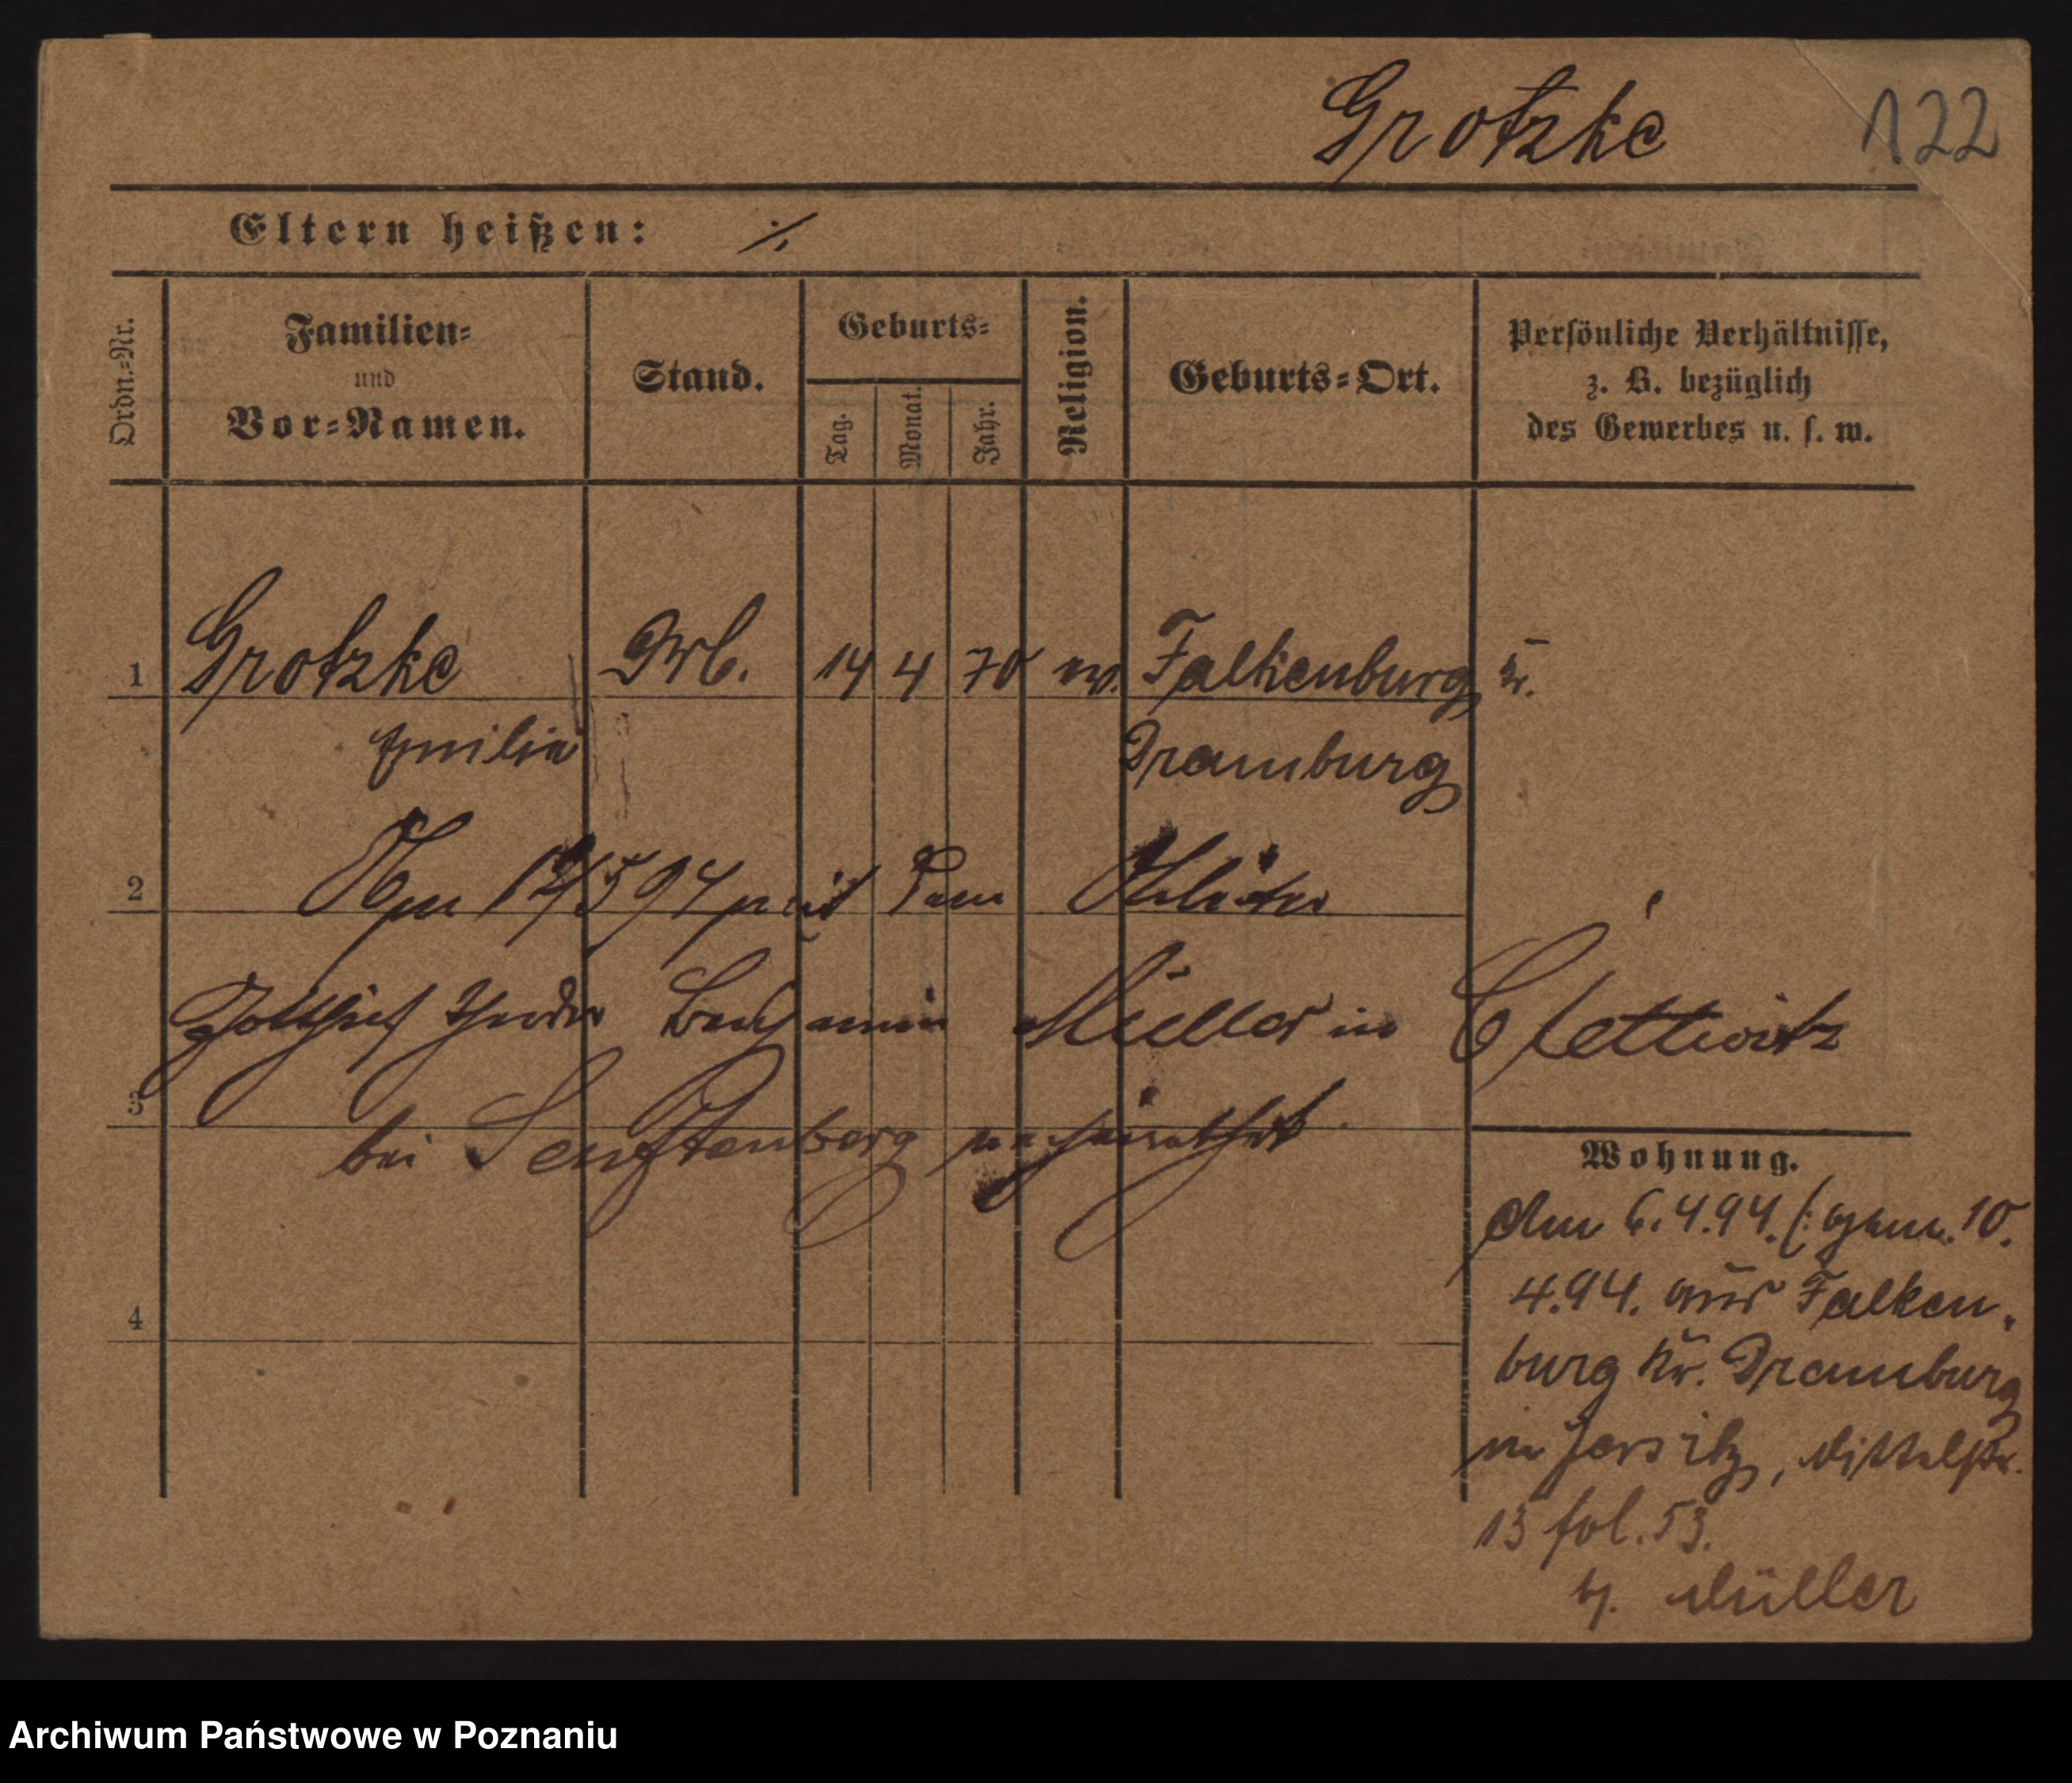 Grotzke 122
Eltern heißen: ·/.
Ordn.-Nr.
Familien-
und
Vor-Namen.
Stand.
Geburts-
Tag.
Monat.
Jahr.
Religion.
Geburts-Ort.
Persönliche Verhältnisse,
z. B. bezüglich
des Gewerbes u. s. w.
1 Grotzke 14 4 70 ev. Falkenburg, Kr.
Emilie Dramburg
2 Am 12/5 94 mit dem
Gottlieb Benjamin Müller in Clettwitz
3
bei Senftenberg verheirathet.
4
Wohnung.
Am 6.4.94. (: gem. 10.
4.94. aus Falken-
burg Kr. Dramburg
in Jersitz, Mittelstr.
13 fol. 53.
b. Müller
Archiwum Państwowe w Poznaniu